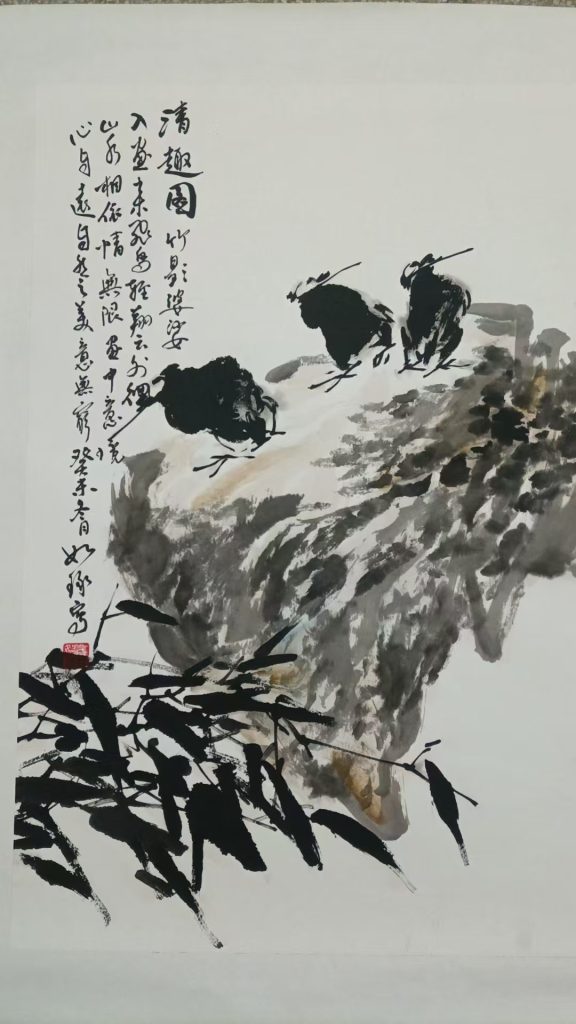 清趣图 竹影婆娑
入画来飛鸟轻翔云外徊
山水相依情無限画中意境
心自遠自然之美意無窮癸未春月如琢寫